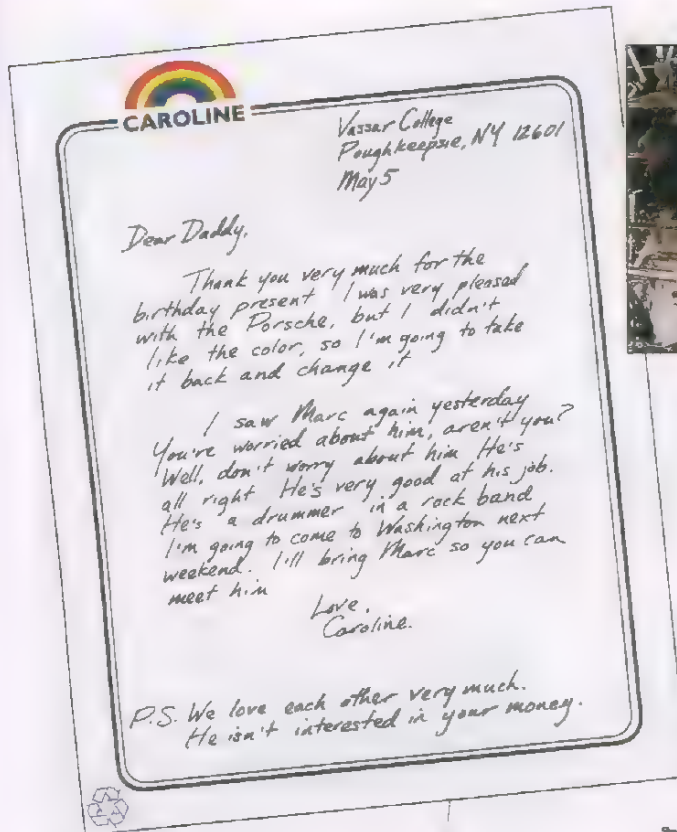 CAROLINE
Vassar College
Poughkeepsie, NY 12601
May 5
Dear Daddy,
Thank you very much for the
birthday present I was very pleased
with the Porsche, but I didn't
like the color, so I'm going to take
it back and change it
I saw Marc again yesterday
You're worried about him, aren't you?
Well, don't worry about him He's
all right He's very good at his job.
He's a drummer in a rock band
I'm going to come to Washington next
weekend. I'll bring Marc so you can
meet him
Love,
Caroline.
P.S. We love each other very much.
He isn't interested in your money.